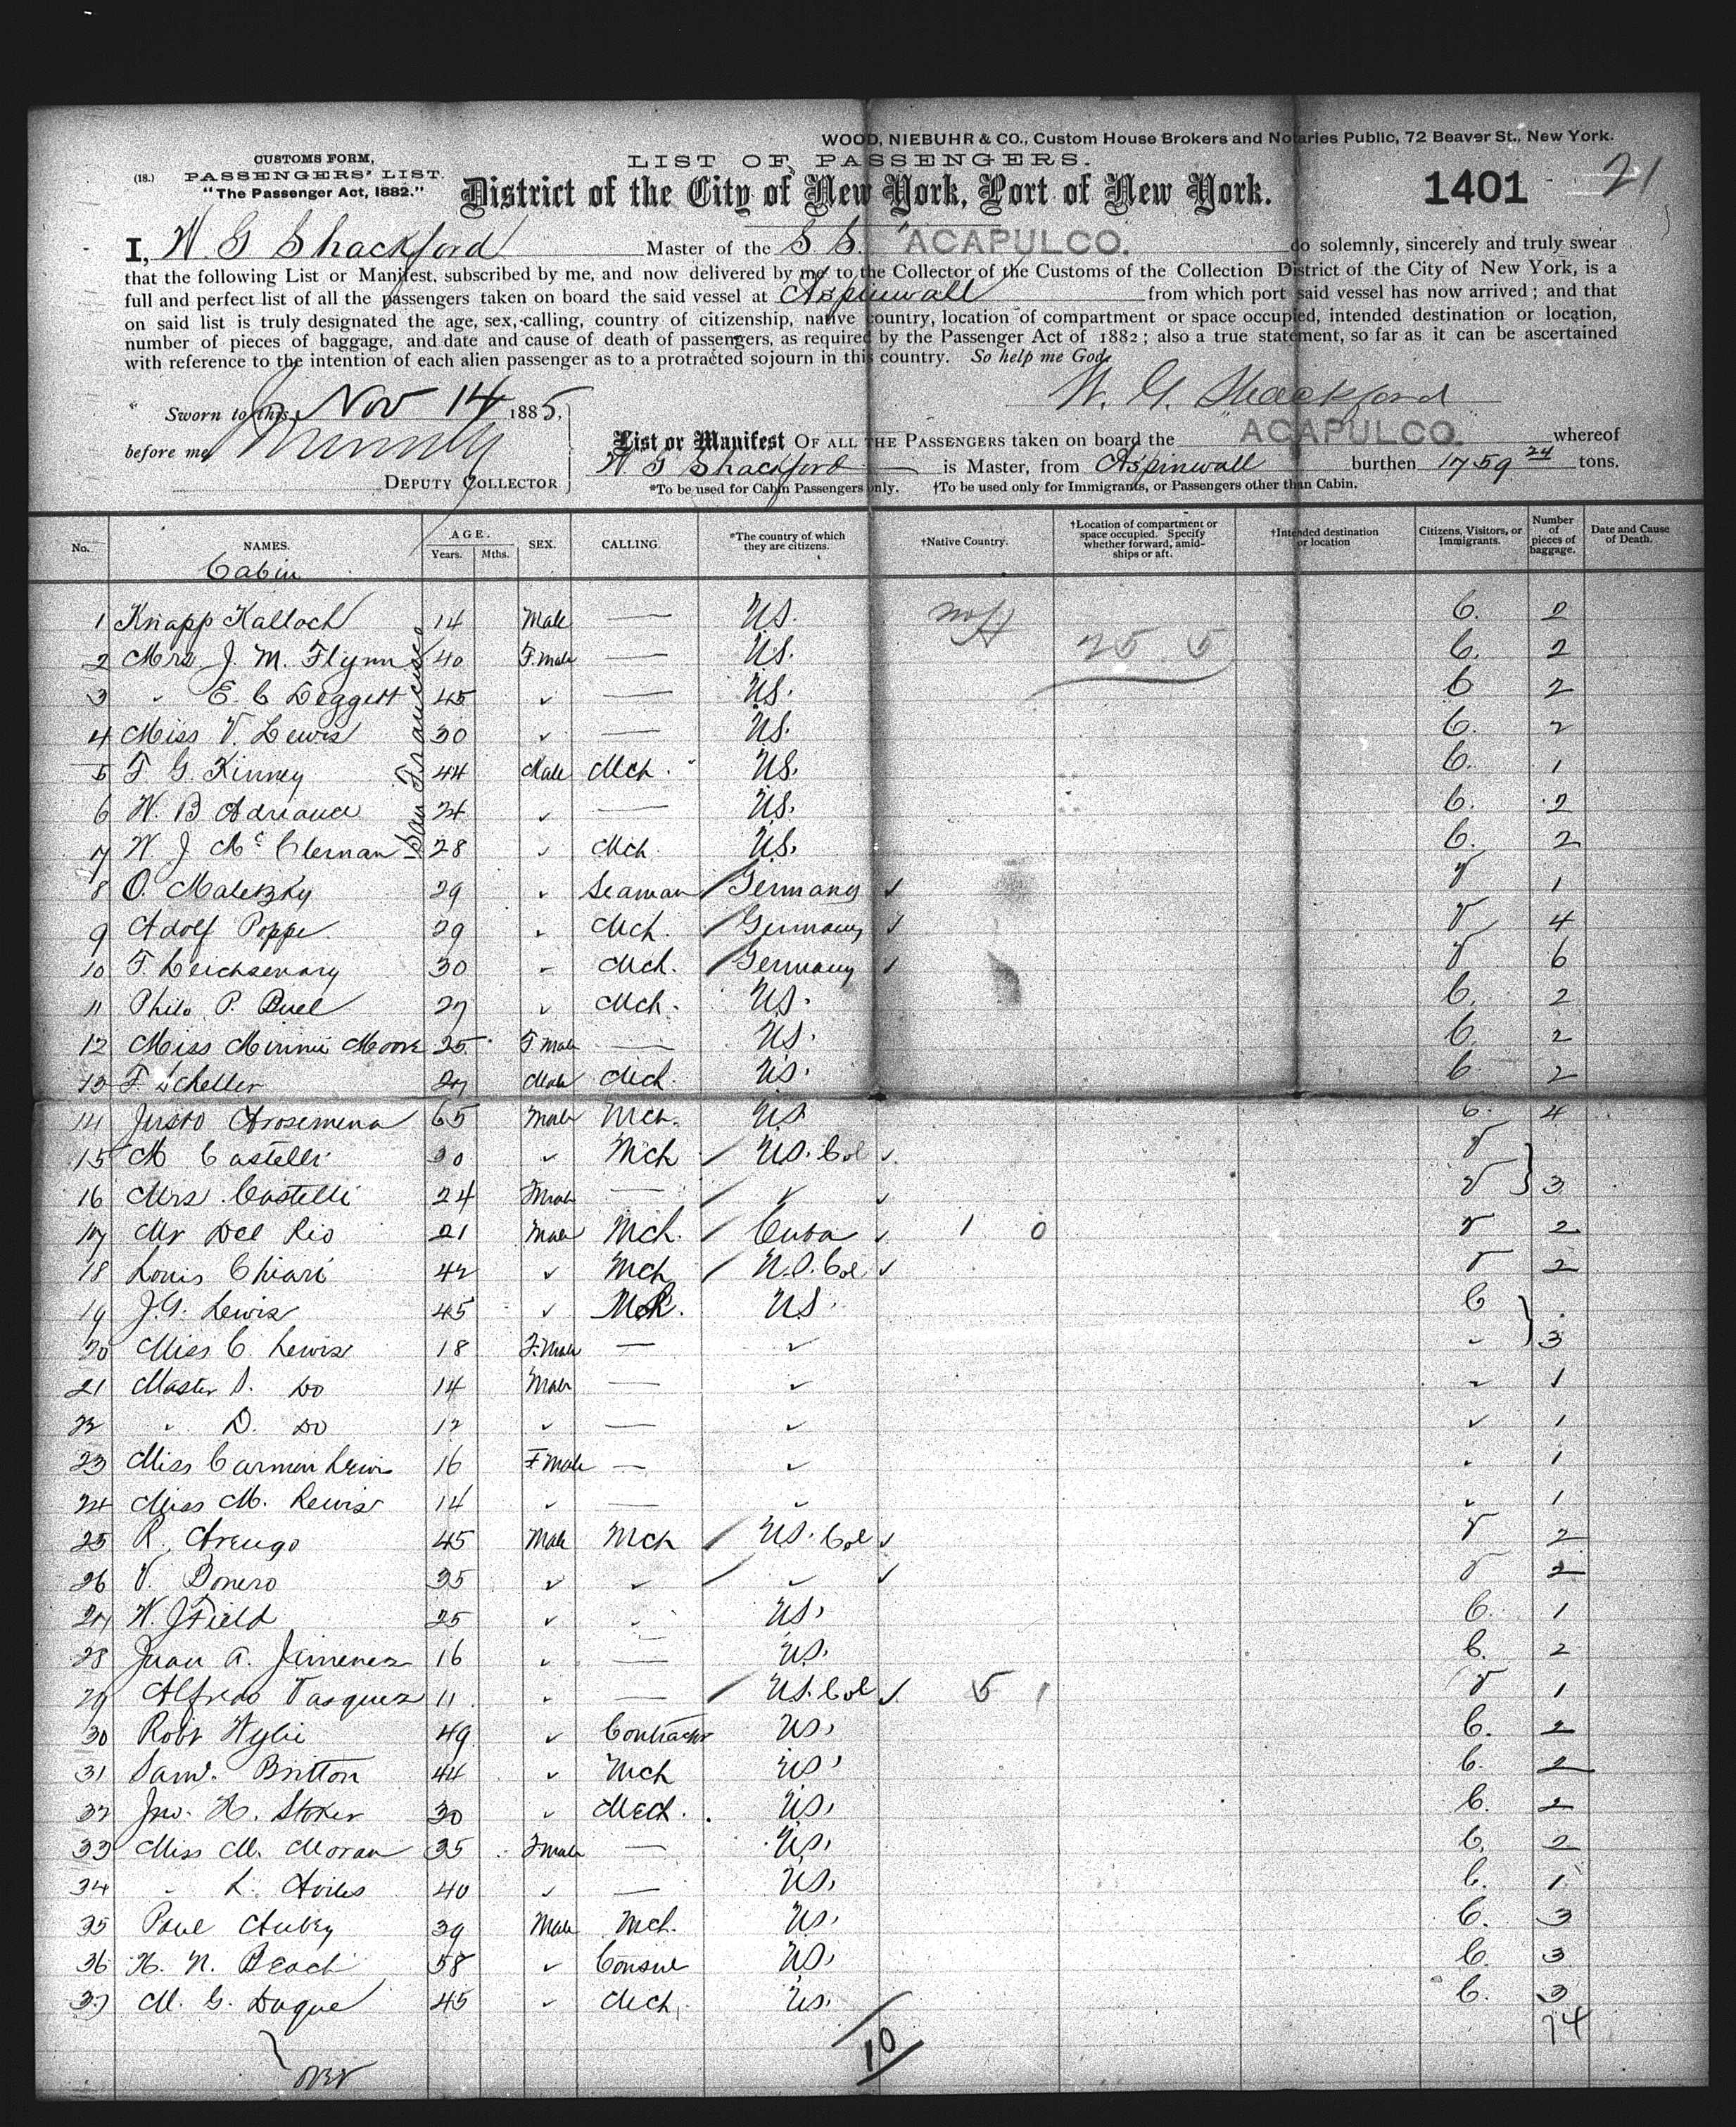 WOOD, NIEBUHR & CO., Custom House Brokers and Notaries Public, 72 Beaver St., New York.
(18.) CUSTOMS FORM,
PASSENGERS' LIST.
"The Passenger Act, 1882."
LIST OF PASSENGERS.
District of the City of New York, Port of New York.
1401 21
I, W G Shackford Master of the S S. "ACAPULCO. do solemnly, sincerely and truly swear
that the following List or Manifest, subscribed by me, and now delivered by me to the Collector of the Customs of the Collection District of the City of New York, is a
full and perfect list of all the passengers taken on board the said vessel at Aspinwall from which port said vessel has now arrived; and that
on said list is truly designated the age, sex, calling, country of citizenship, native country, location of compartment or space occupied, intended destination or location,
number of pieces of baggage, and date and cause of death of passengers, as required by the Passenger Act of 1882; also a true statement, so far as it can be ascertained
with reference to the intention of each alien passenger as to a protracted sojourn in this country. So help me God.
W. G. Shackford
Sworn to this Nov 14 1885,
before me
DEPUTY COLLECTOR
List or Manifest OF ALL THE PASSENGERS taken on board the ACAPULCO. whereof
W G Shackford is Master, from Aspinwall burthen 1759 24 tons.
*To be used for Cabin Passengers only. †To be used only for Immigrants, or Passengers other than Cabin.
No. NAMES. AGE. Years. Mths. SEX. CALLING. *The country of which they are citizens. †Native Country. †Location of compartment or space occupied. Specify whether forward, amidships or aft. †Intended destination or location Citizens, Visitors, or Immigrants. Number of pieces of baggage. Date and Cause of Death.
Cabin
San Francisco
1 Knapp Kalloch 14 Male — US. C. 2
2 Mrs J. M. Flynn 40 F.male — US. 25 5 C. 2
3 " E. C Deggett 45 " — US. C 2
4 Miss V. Lewis 30 " — US. C. 2
5 F. G. Kinney 44 Male Mch. US. C. 1
6 W. B Adriance 24 " — US. C. 2
7 W J Mc Clernan 28 " Mch US. C. 2
8 O. Maletzky 29 " Seaman Germany ✓ V 1
9 Adolf Poppe 29 " Mch. Germany ✓ V 4
10 F. 30 " Mch. Germany ✓ V 6
11 Philo P. Buel 27 " Mch. US. C. 2
12 Miss Minnie Moore 25 F male — US. C. 2
13 F. Scheller 27 Male Mch. US. C. 2
14 Justo Arosemena 65 Male Mch. US C. 4
15 M Castelli 30 " Mch US. Col ✓ V
16 Mrs. Castelli 24 Fmale — " ✓ V 3
17 Mr Del Rio 21 Male Mch. Cuba ✓ 1 0 V 2
18 Louis Chiari 42 " Mch U.S. Col ✓ V 2
19 J. G. Lewis 45 " Mch. US. C
20 Miss C. Lewis 18 F.Male — " " 3
21 Master S. Do 14 Male — " " 1
22 " D. Do 12 " — " " 1
23 Miss Carmen Lewis 16 F male — " " 1
24 Miss M. Lewis 14 " — " " 1
25 R. Arengo 45 Male Mch US. Col ✓ V 2
26 V. Bonero 35 " " " ✓ V 2
27 W. J Field 25 " " US, C. 1
28 Juan A. Jimenez 16 " — US. C. 2
29 Alfredo Vasquez 11 " — US. Col ✓ 5 1 V 1
30 Robt Wylie 49 " Contractor US, C. 2
31 Saml. Britton 44 " Mch US, C. 2
32 Jno. H. Stoker 30 " Mech. US, C. 2
33 Miss M. Moran 35 Fmale — US, C. 2
34 " L. Aviles 40 " — US, C. 1
35 Paul Aubry 39 Male Mch. US, C. 3
36 H. N. Beach 58 " Consul US, C. 3
37 M. G. Duque 45 " Mch, US. C. 3
74
10
over